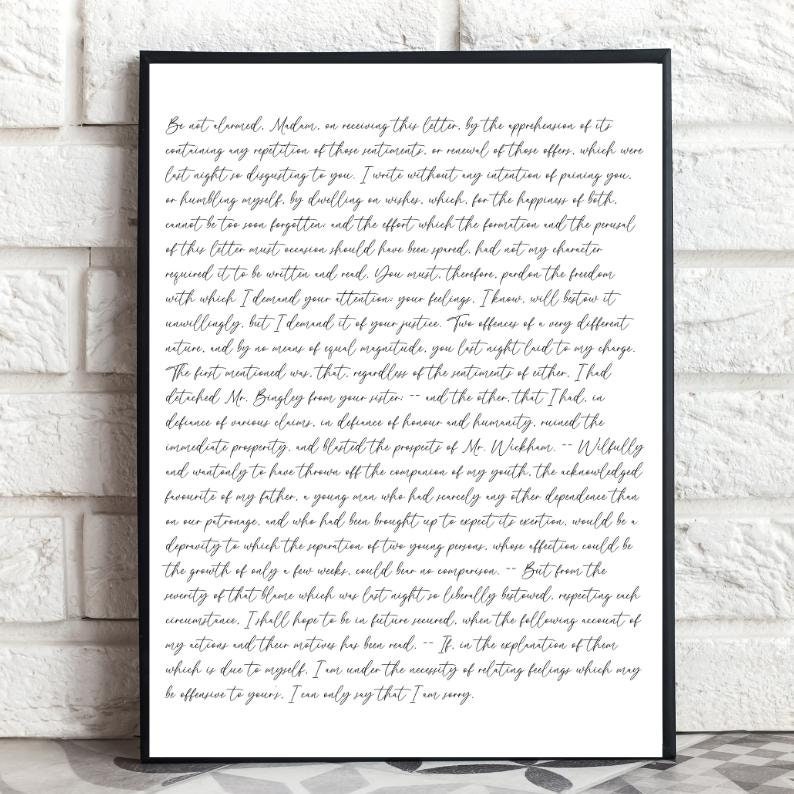 Be not alarmed, Madam, on receiving this letter, by the apprehension of its
containing any repetition of those sentiments, or renewal of those offers, which were
last night so disgusting to you. I write without any intention of paining you,
or humbling myself, by dwelling on wishes, which, for the happiness of both,
cannot be too soon forgotten; and the effort which the formation and the perusal
of this letter must occasion should have been spared, had not my character
required it to be written and read. You must, therefore, pardon the freedom
with which I demand your attention; your feelings, I know, will bestow it
unwillingly, but I demand it of your justice. Two offences of a very different
nature, and by no means of equal magnitude, you last night laid to my charge.
The first mentioned was, that, regardless of the sentiments of either, I had
detached Mr. Bingley from your sister; -- and the other, that I had, in
defiance of various claims, in defiance of honour and humanity, ruined the
immediate prosperity, and blasted the prospects of Mr. Wickham. -- Wilfully
and wantonly to have thrown off the companion of my youth, the acknowledged
favourite of my father, a young man who had scarcely any other dependence than
on our patronage, and who had been brought up to expect its exertion, would be a
depravity to which the separation of two young persons, whose affection could be
the growth of only a few weeks, could bear no comparison. -- But from the
severity of that blame which was last night so liberally bestowed, respecting each
circumstance, I shall hope to be in future secured, when the following account of
my actions and their motives has been read. -- If, in the explanation of them
which is due to myself, I am under the necessity of relating feelings which may
be offensive to yours, I can only say that I am sorry.